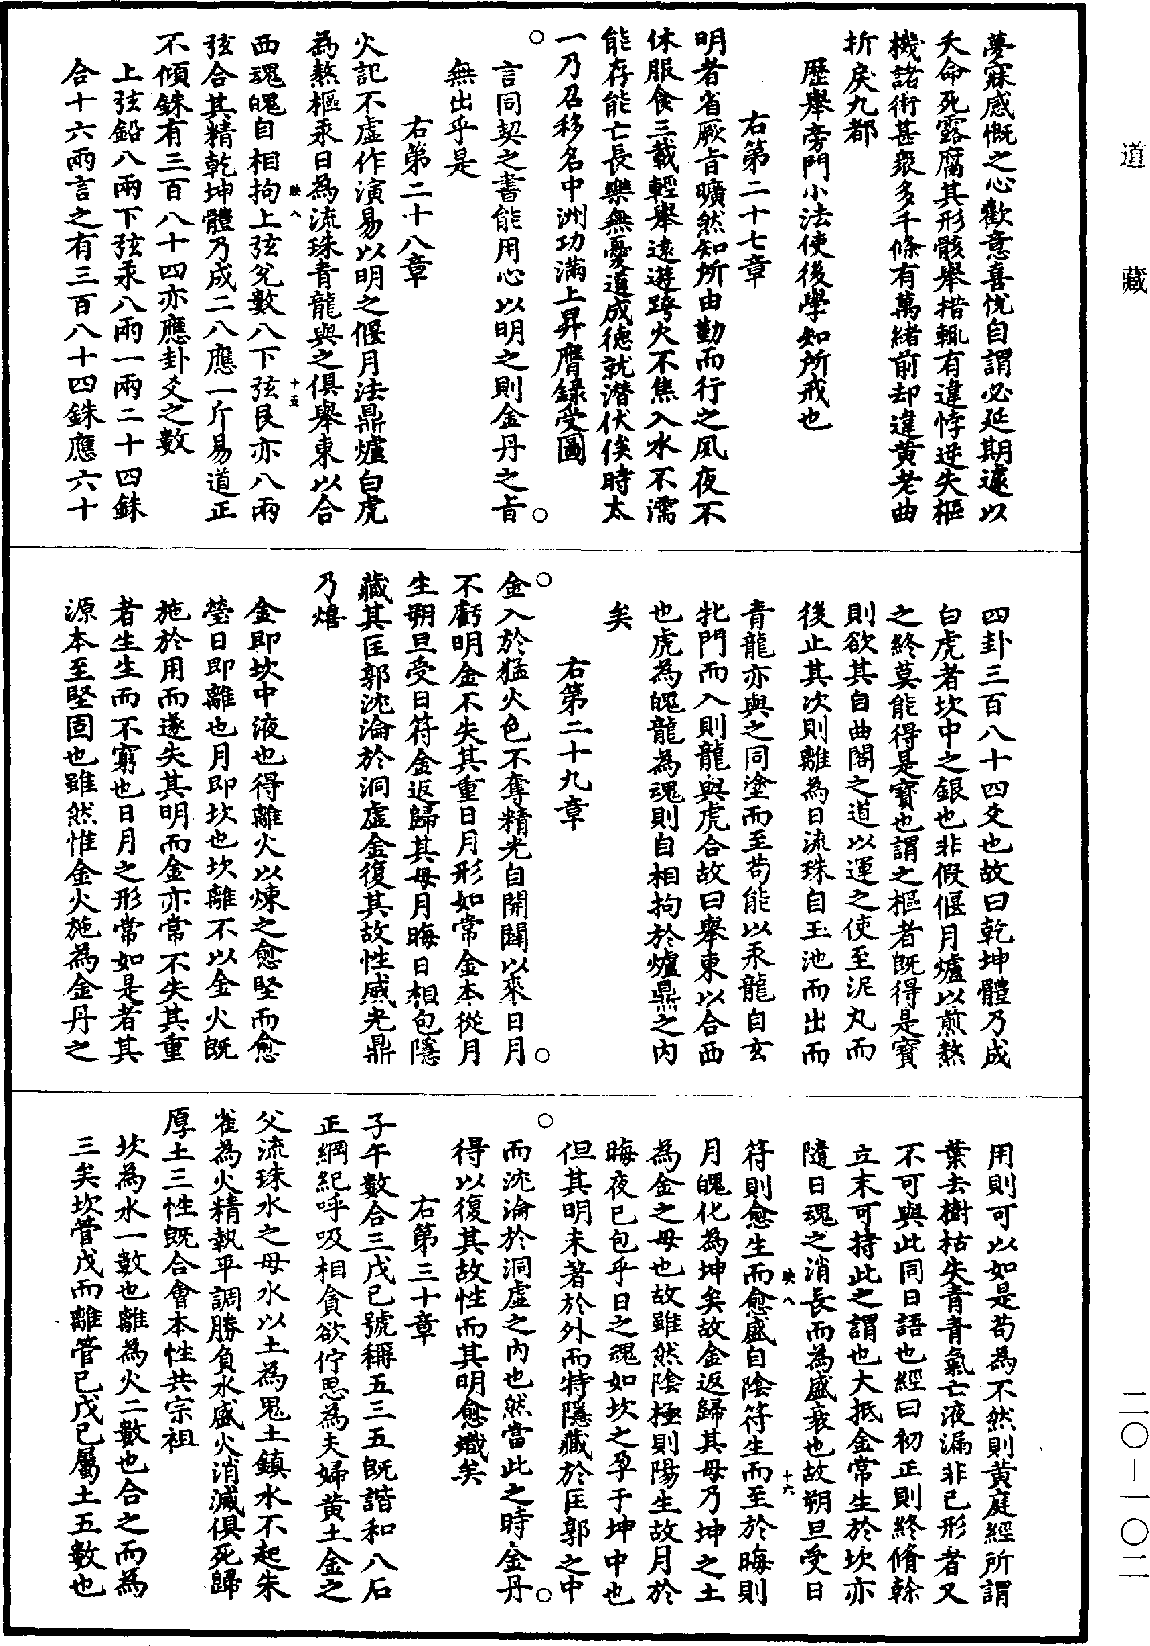 道 藏
二〇—一〇二
夢寐感慨之心歡意喜悅自謂必延期遽以
夭命死露腐其形骸舉措輒有違悖逆失樞
機諸術甚衆多千條有萬緒前却違黄老曲
折戾九都
歷舉旁門小法使後學知所戒也
右第二十七章
明者省厥旨曠然知所由勤而行之夙夜不
休服食三載輕舉遠遊跨火不焦入水不濡
能存能亡長樂無憂道成德就潜伏俟時太
一乃召移名中洲功滿上昇膺籙受圖
○
○
言同契之書能用心以明之則金丹之旨
無出乎是
右第二十八章
火記不虚作演易以明之偃月法鼎爐白虎
為熬樞汞日為流珠青龍與之俱舉東以合
西魂魄自相拘上弦兌數八下弦艮亦八兩
映八
十五
弦合其精乾坤體乃成二八應一斤易道正
不傾銖有三百八十四亦應卦爻之數
上弦鉛八兩下弦汞八兩一兩二十四銖
合十六兩言之有三百八十四銖應六十
四卦三百八十四爻也故曰乾坤體乃成
白虎者坎中之銀也非假偃月爐以煎熬
之終莫能得是寶也謂之樞者既得是寶
則欲其自曲閣之道以運之使至泥丸而
後止其次則離為日流珠自玉池而出而
青龍亦與之同塗而至苟能以汞龍自玄
牝門而入則龍與虎合故曰舉東以合西
也虎為魄龍為魂則自相拘於爐鼎之内
矣
右第二十九章
○
○
金入於猛火色不奪精光自開闢以來日月
不虧明金不失其重日月形如常金本從月
生朔旦受日符金返歸其母月晦日相包隱
藏其匡郭沈淪於洞虚金復其故性威光鼎
乃熺
金即坎中液也得離火以煉之愈堅而愈
瑩日即離也月即坎也坎離不以金火既
施於用而遂失其明而金亦常不失其重
者生生而不窮也日月之形常如是者其
源本至堅固也雖然惟金火施為金丹之
用則可以如是苟為不然則黄庭經所謂
葉去樹枯失青青氣亡液漏非已形者又
不可與此同日語也經曰初正則終脩榦
立末可持此之謂也大抵金常生於坎亦
隨日魂之消長而為盛衰也故朔旦受日
映八
十六
符則愈生而愈盛自陰符生而至於晦則
月魄化為坤矣故金返歸其母乃坤之土
為金之母也故雖然陰極則陽生故月於
晦夜已包乎日之魂如坎之孕于坤中也
但其明未著於外而特隱藏於匡郭之中
○
○
而沈淪於洞虚之内也然當此之時金丹
得以復其故性而其明愈熾矣
右第三十章
子午數合三戊已號稱五三五既諧和八石
正綱紀呼吸相貪欲佇思為夫婦黄土金之
父流珠水之母水以土為鬼土鎮水不起朱
雀為火精執平調勝負水盛火消滅俱死歸
厚土三性既合會本性共宗祖
坎為水一數也離為火二數也合之而為
三矣坎管戊而離管已戊已屬土五數也